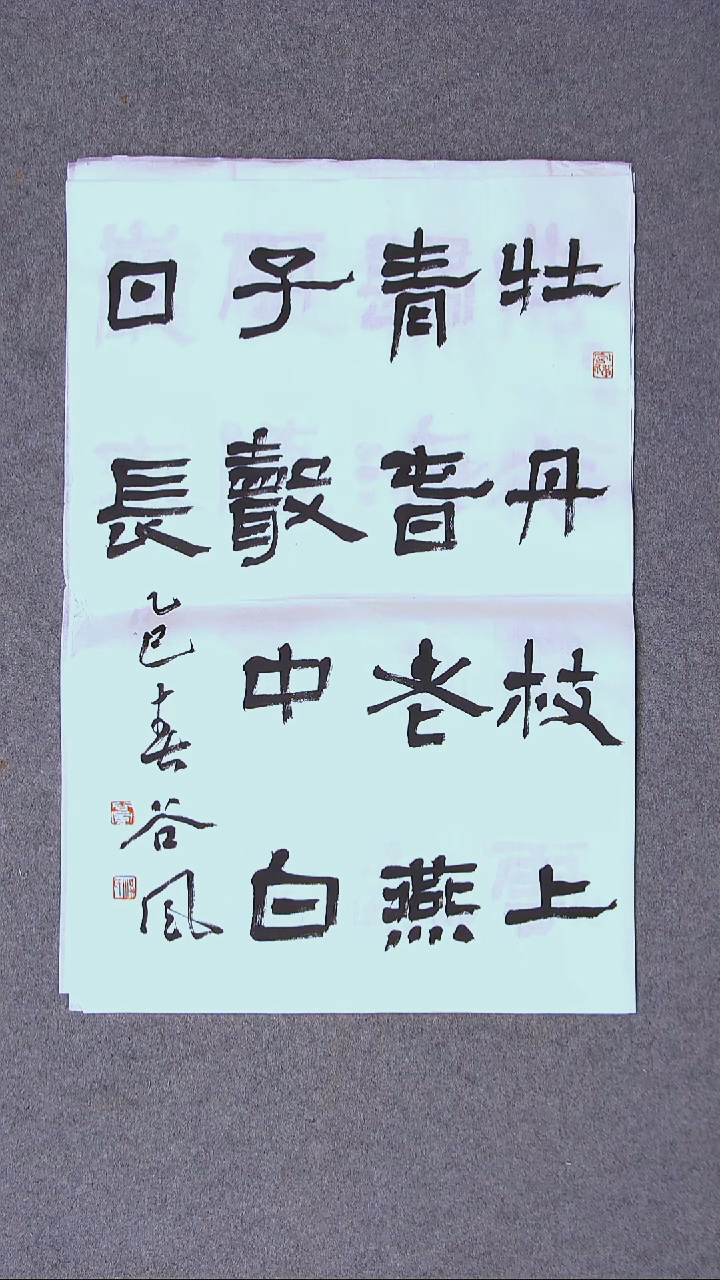 牡丹枝上
青春老燕
子聲中白
日長
乙巳春谷风